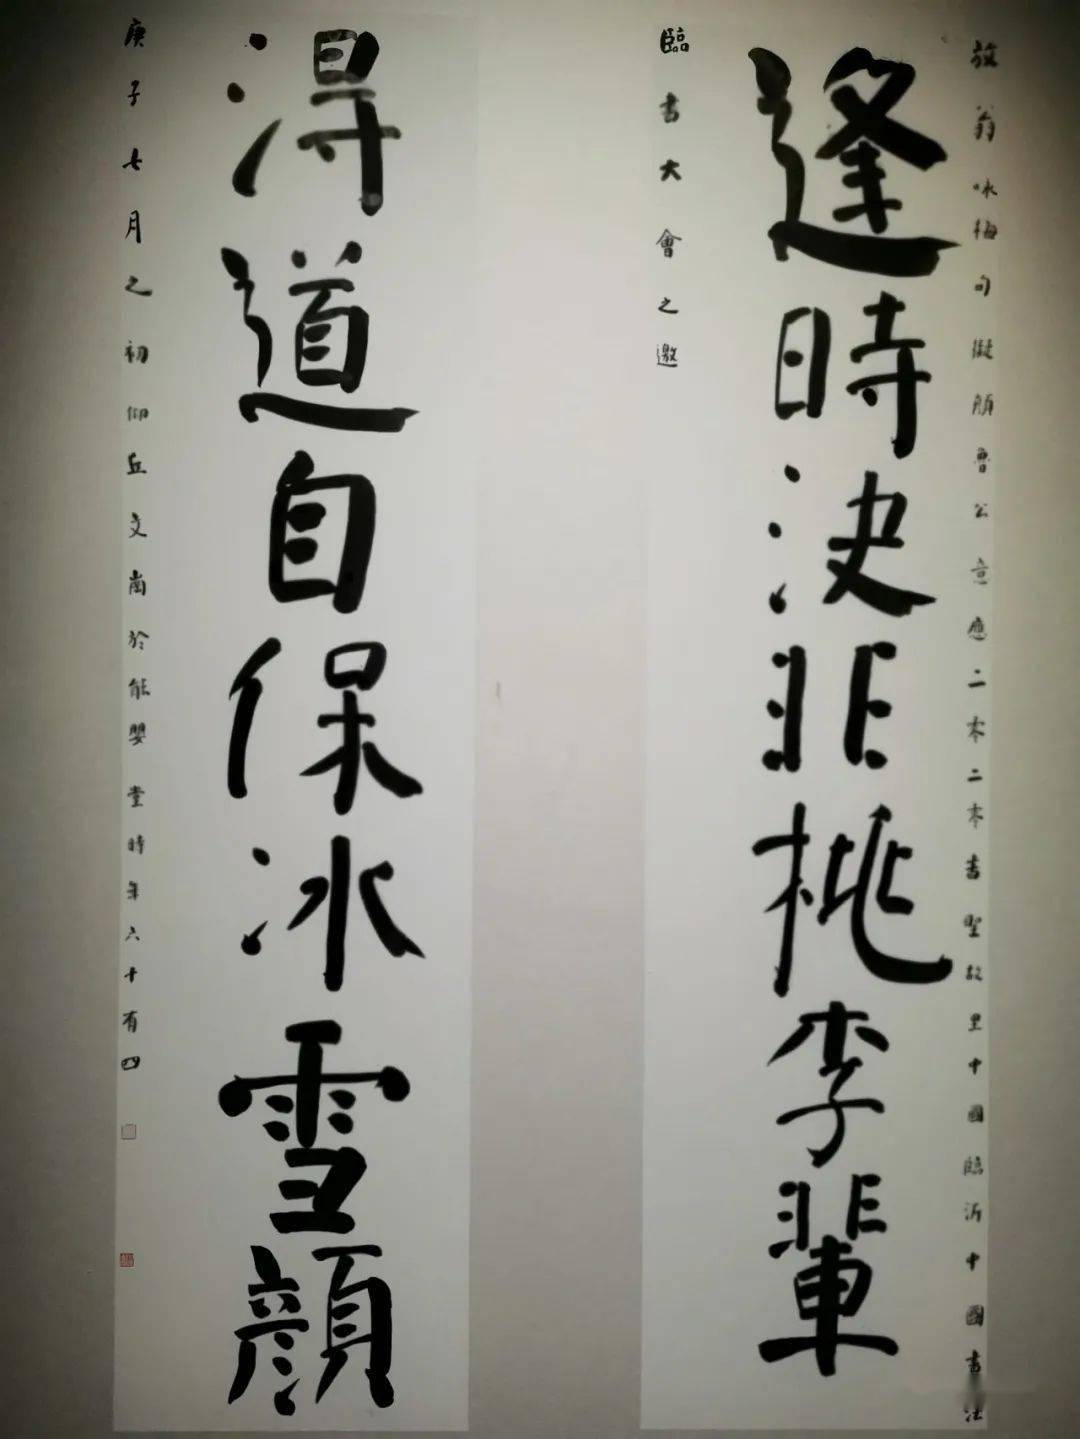 放翁詠梅句擬顏魯公意應二零二零書聖故里中國臨沂中國書法
逢時決非桃李輩
臨書大會之邀
得道自保冰雪顏
庚子七月之初仰丘文崗於能嬰堂時年六十有四